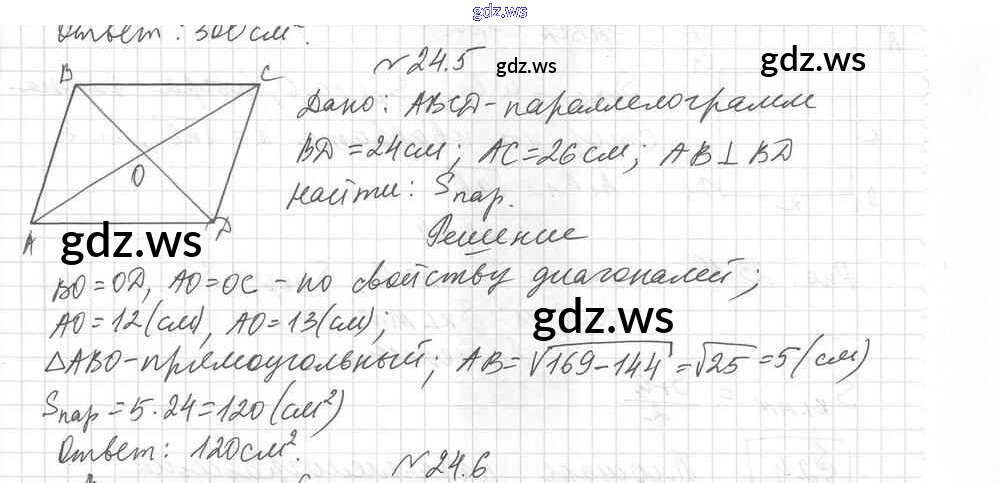 gdz.ws
Ответ: 300 см².
№24.5
gdz.ws
gdz.ws
B C
Дано: ABCD - параллелограмм
BD = 24 см; AC = 26 см; AB ⊥ BD
O
Найти: Sпар.
A D
gdz.ws
Решение
BO = OD, AO = OC - по свойству диагоналей;
AO = 12 (см), AO = 13 (см);
gdz.ws
△ABO - прямоугольный; AB = √169-144 = √25 = 5 (см)
Sпар = 5·24 = 120 (см²)
Ответ: 120 см².
№24.6